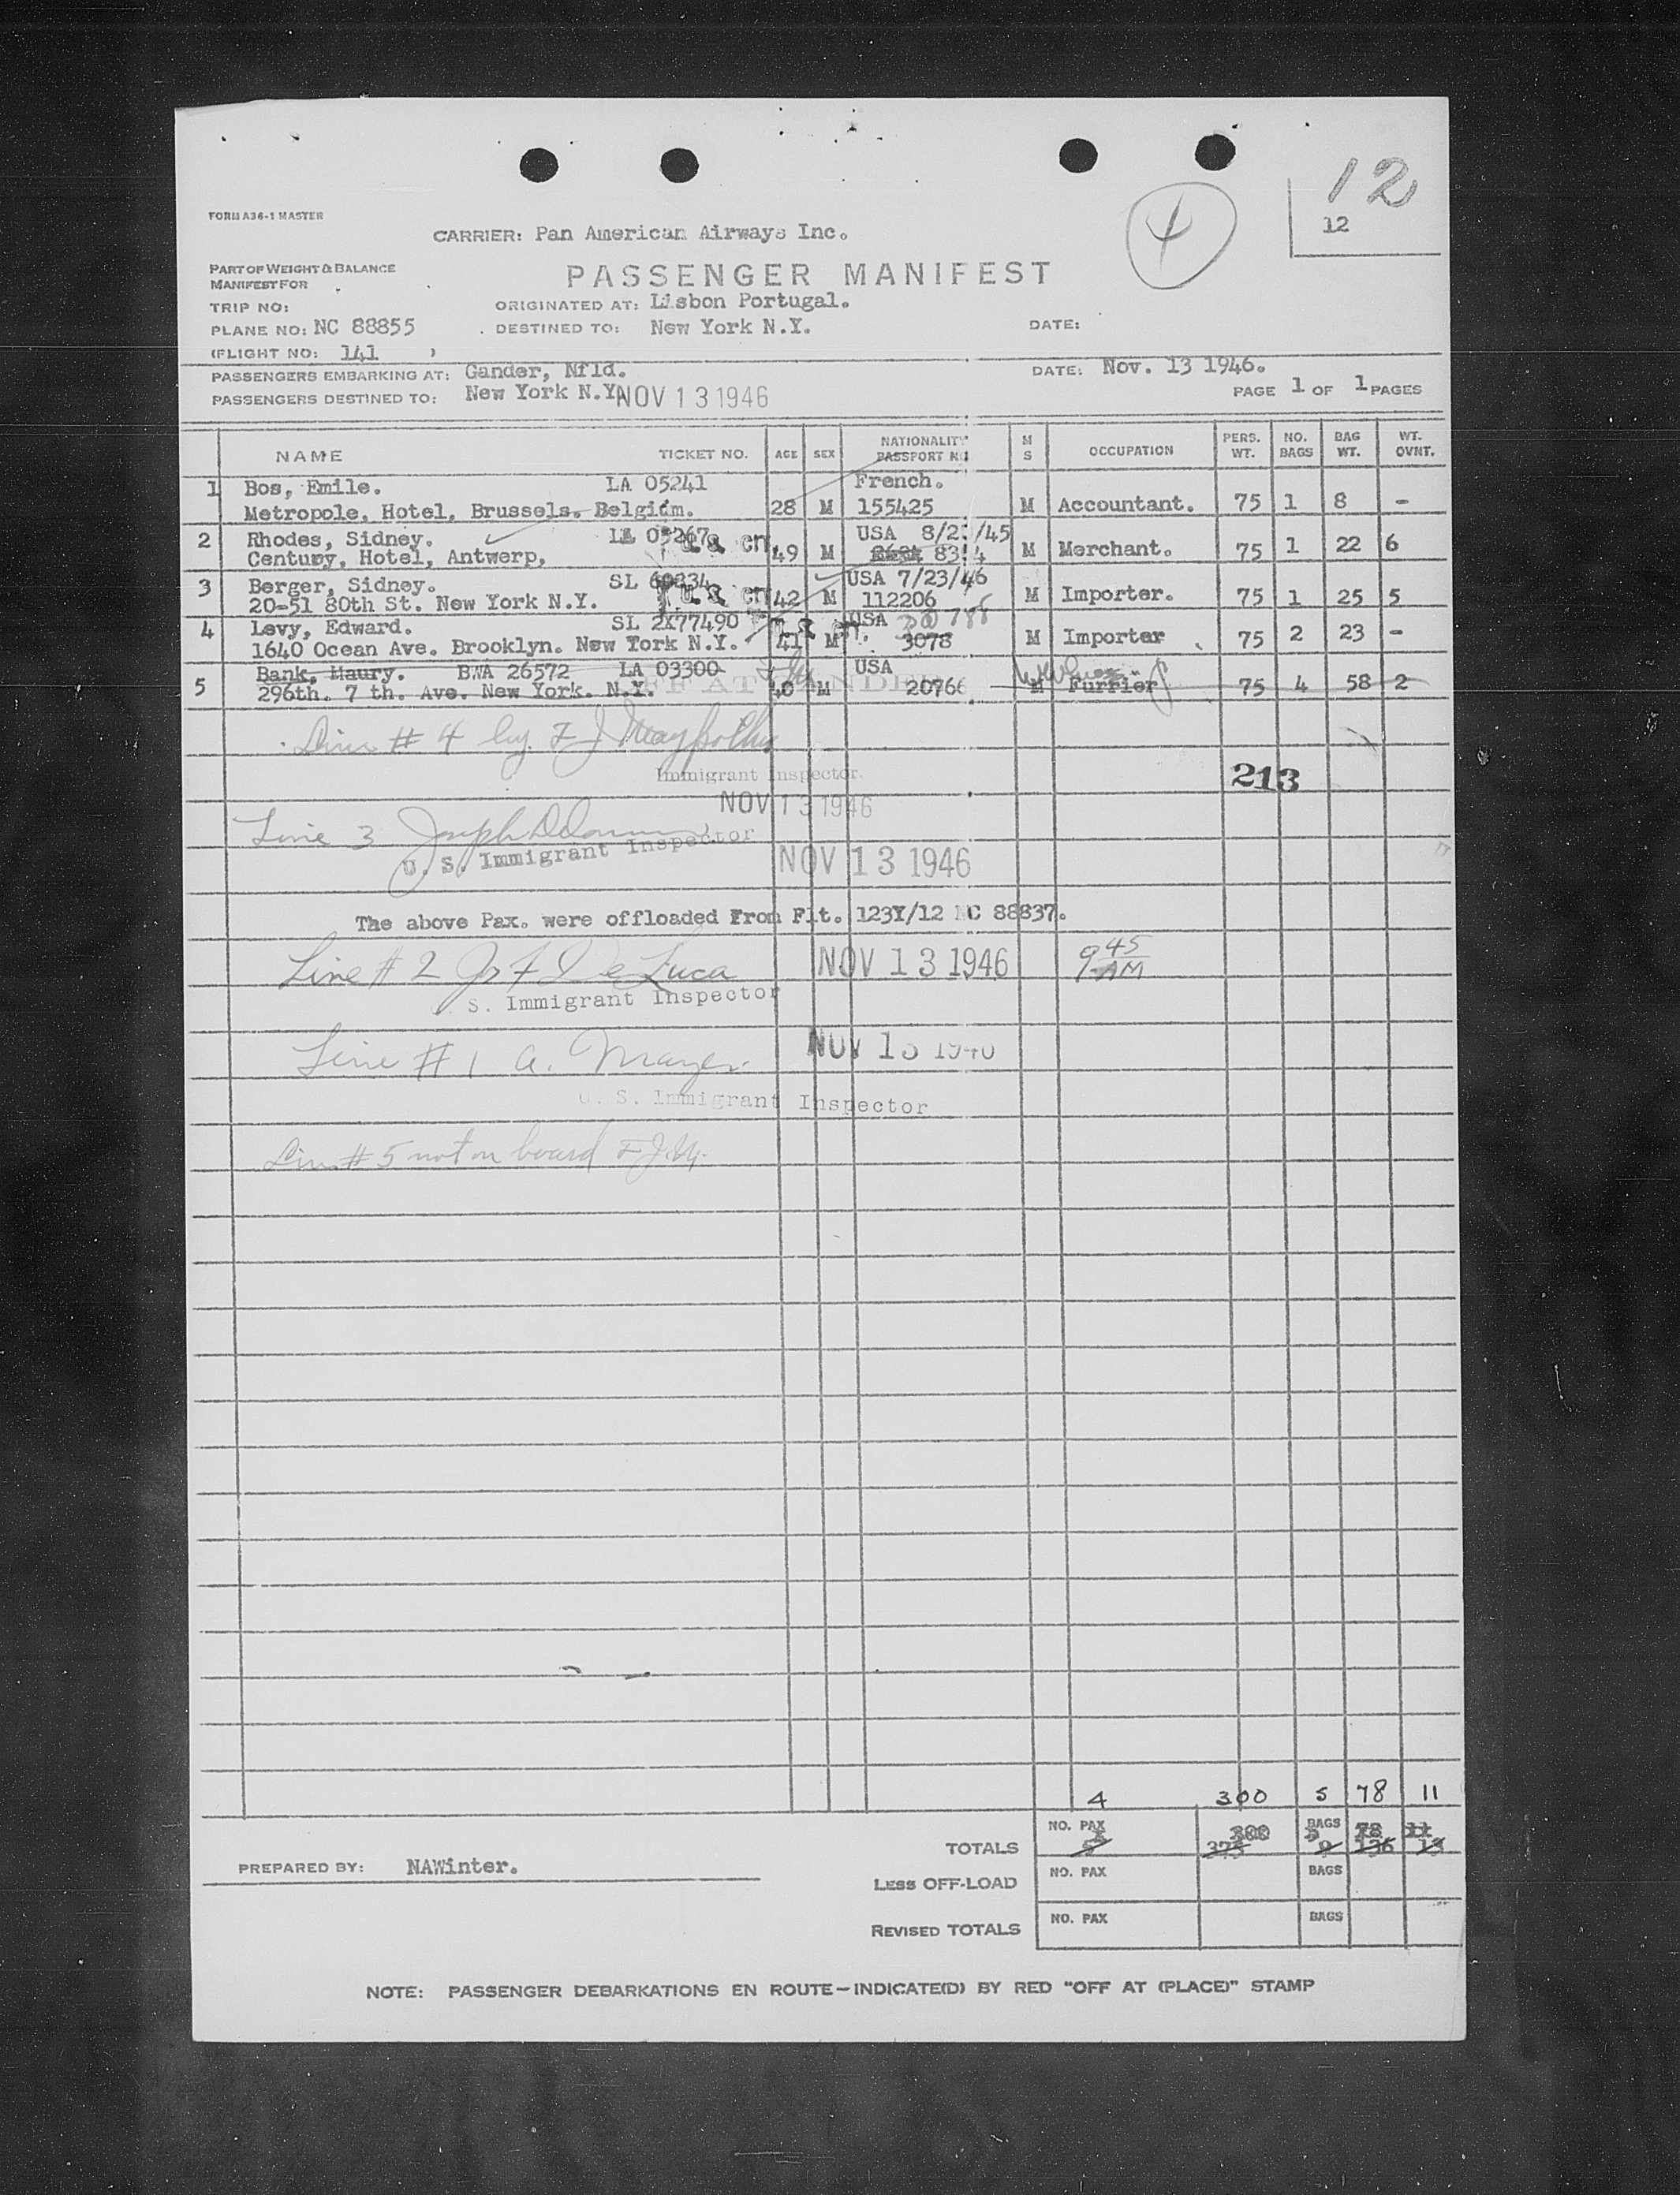 12
4
FORM A36-1 MASTER
12
CARRIER: Pan American Airways Inc.
PART OF WEIGHT & BALANCE
MANIFEST FOR
PASSENGER MANIFEST
TRIP NO:
ORIGINATED AT: Lisbon Portugal.
PLANE NO: NC 88855
DESTINED TO: New York N.Y.
DATE:
(FLIGHT NO: 141 )
PASSENGERS EMBARKING AT: Gander, Nfld.
DATE: Nov. 13 1946.
PASSENGERS DESTINED TO: New York N.Y. NOV 13 1946
PAGE 1 OF 1 PAGES
NAME TICKET NO. AGE SEX NATIONALITY PASSPORT NO M S OCCUPATION PERS. WT. NO. BAGS BAG WT. WT. OVNT.
1 Bos, Emile. LA 05241 French.
Metropole, Hotel, Brussels. Belgium. 28 M 155425 M Accountant. 75 1 8 -
2 Rhodes, Sidney. LA 05267 U.S. USA 8/2 /45
Century, Hotel, Antwerp, 49 M 83 4 M Merchant. 75 1 22 6
3 Berger, Sidney. SL 60234 U.S. USA 7/23/46
20-51 80th St. New York N.Y. 42 M 112206 M Importer. 75 1 25 5
4 Levy, Edward. SL 2X77490 USA
1640 Ocean Ave. Brooklyn. New York N.Y. 41 M 3078 M Importer 75 2 23 -
Bank, Maury. BWA 26572 LA 03300 USA
5 296th. 7 th. Ave. New York. N.Y. OFF AT GANDER 40 M 20766 M Furrier 75 4 58 2
Line # 4 by F J
Immigrant Inspector.
213
NOV 13 1946
Line 3 Joseph
U. S. Immigrant Inspector
NOV 13 1946
The above Pax. were offloaded From Flt. 123Y/12 NC 88837.
Line # 2 De Luca NOV 13 1946 9 45 AM
U. S. Immigrant Inspector
Line # 1 A. Mayer NOV 13 1946
U. S. Immigrant Inspector
Line # 5 not on board F.J.M.
4 300 5 78 11
TOTALS NO. PAX 5 300 375 BAGS 5 9 78 136 11 13
PREPARED BY: NAWinter.
LESS OFF-LOAD NO. PAX BAGS
REVISED TOTALS NO. PAX BAGS
NOTE: PASSENGER DEBARKATIONS EN ROUTE—INDICATE(D) BY RED "OFF AT (PLACE)" STAMP